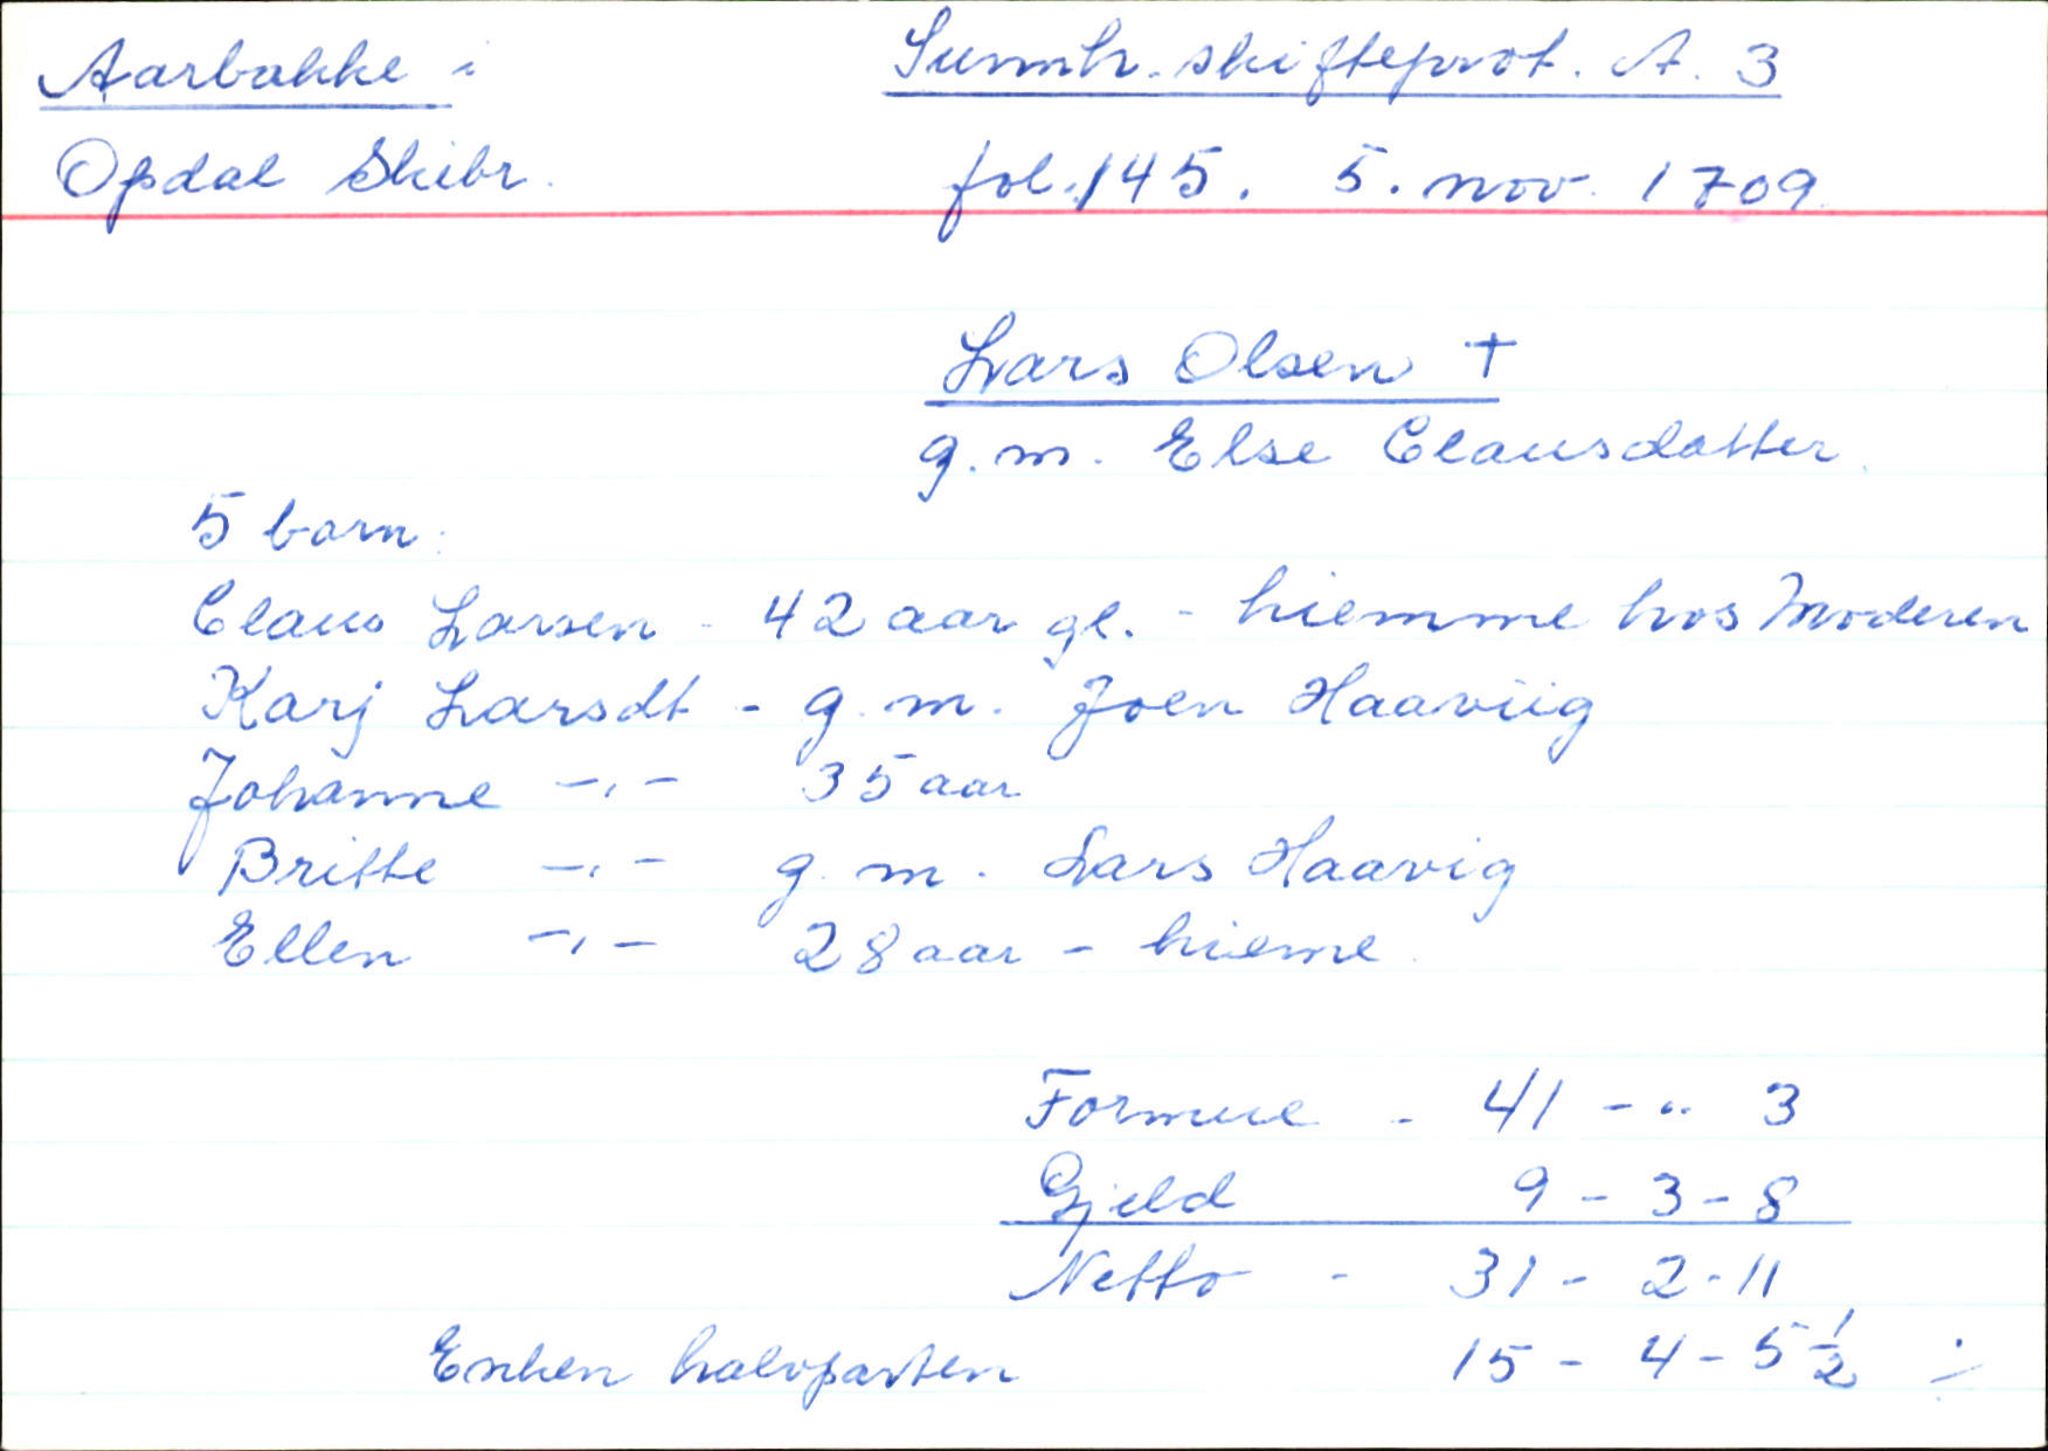 Aarbakke i
Sunnh. skifteprot. A. 3
Opdal Skibr.
fol. 145. 5. nov. 1709.
Lars Olsen †
g. m. Else Clausdatter.
5 barn:
Claus Larsen - 42 aar gl. - hiemme hos Moderen
Karj Larsdt - g. m. Joen Haaviig
Johanne -"- 35 aar
Britte -"- g. m. Lars Haavig
Ellen -"- 28 aar - hieme.
Formue - 41 - " 3
Gjeld 9 - 3 - 8
Netto - 31 - 2 - 11
Enken halvparten 15 - 4 - 5 1/2